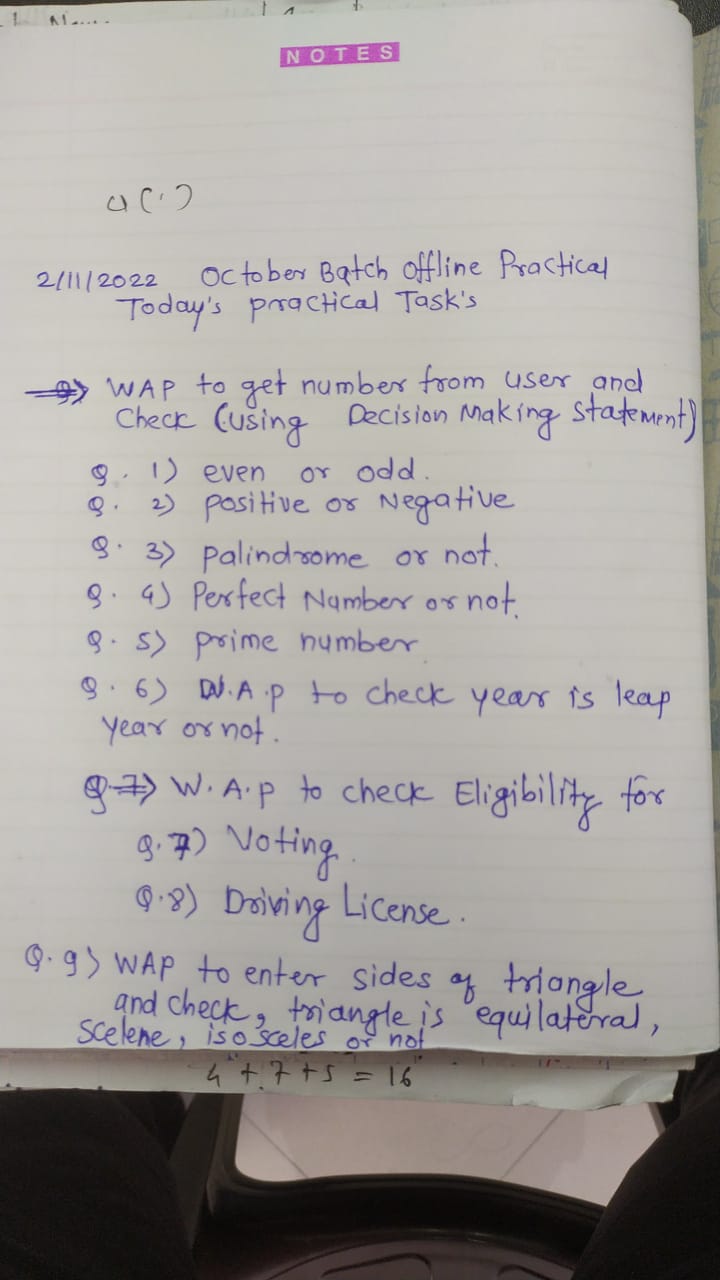 NOTES
2/11/2022 October Batch Offline Practical
Today's practical Task's
WAP to get number from user and
Check (using Decision Making Statement)
Q. 1) even or odd.
Q. 2) positive or Negative
Q. 3) palindrome or not.
Q. 4) Perfect Number or not.
Q. 5) prime number
Q. 6) W.A.P to check year is leap
year or not.
Q 7) W.A.P to check Eligibility for
Q.7) Voting.
Q.8) Driving License.
Q.9) WAP to enter sides of triangle
and check, triangle is equilateral,
Scelene, isosceles or not
4 + 7 + 5 = 16